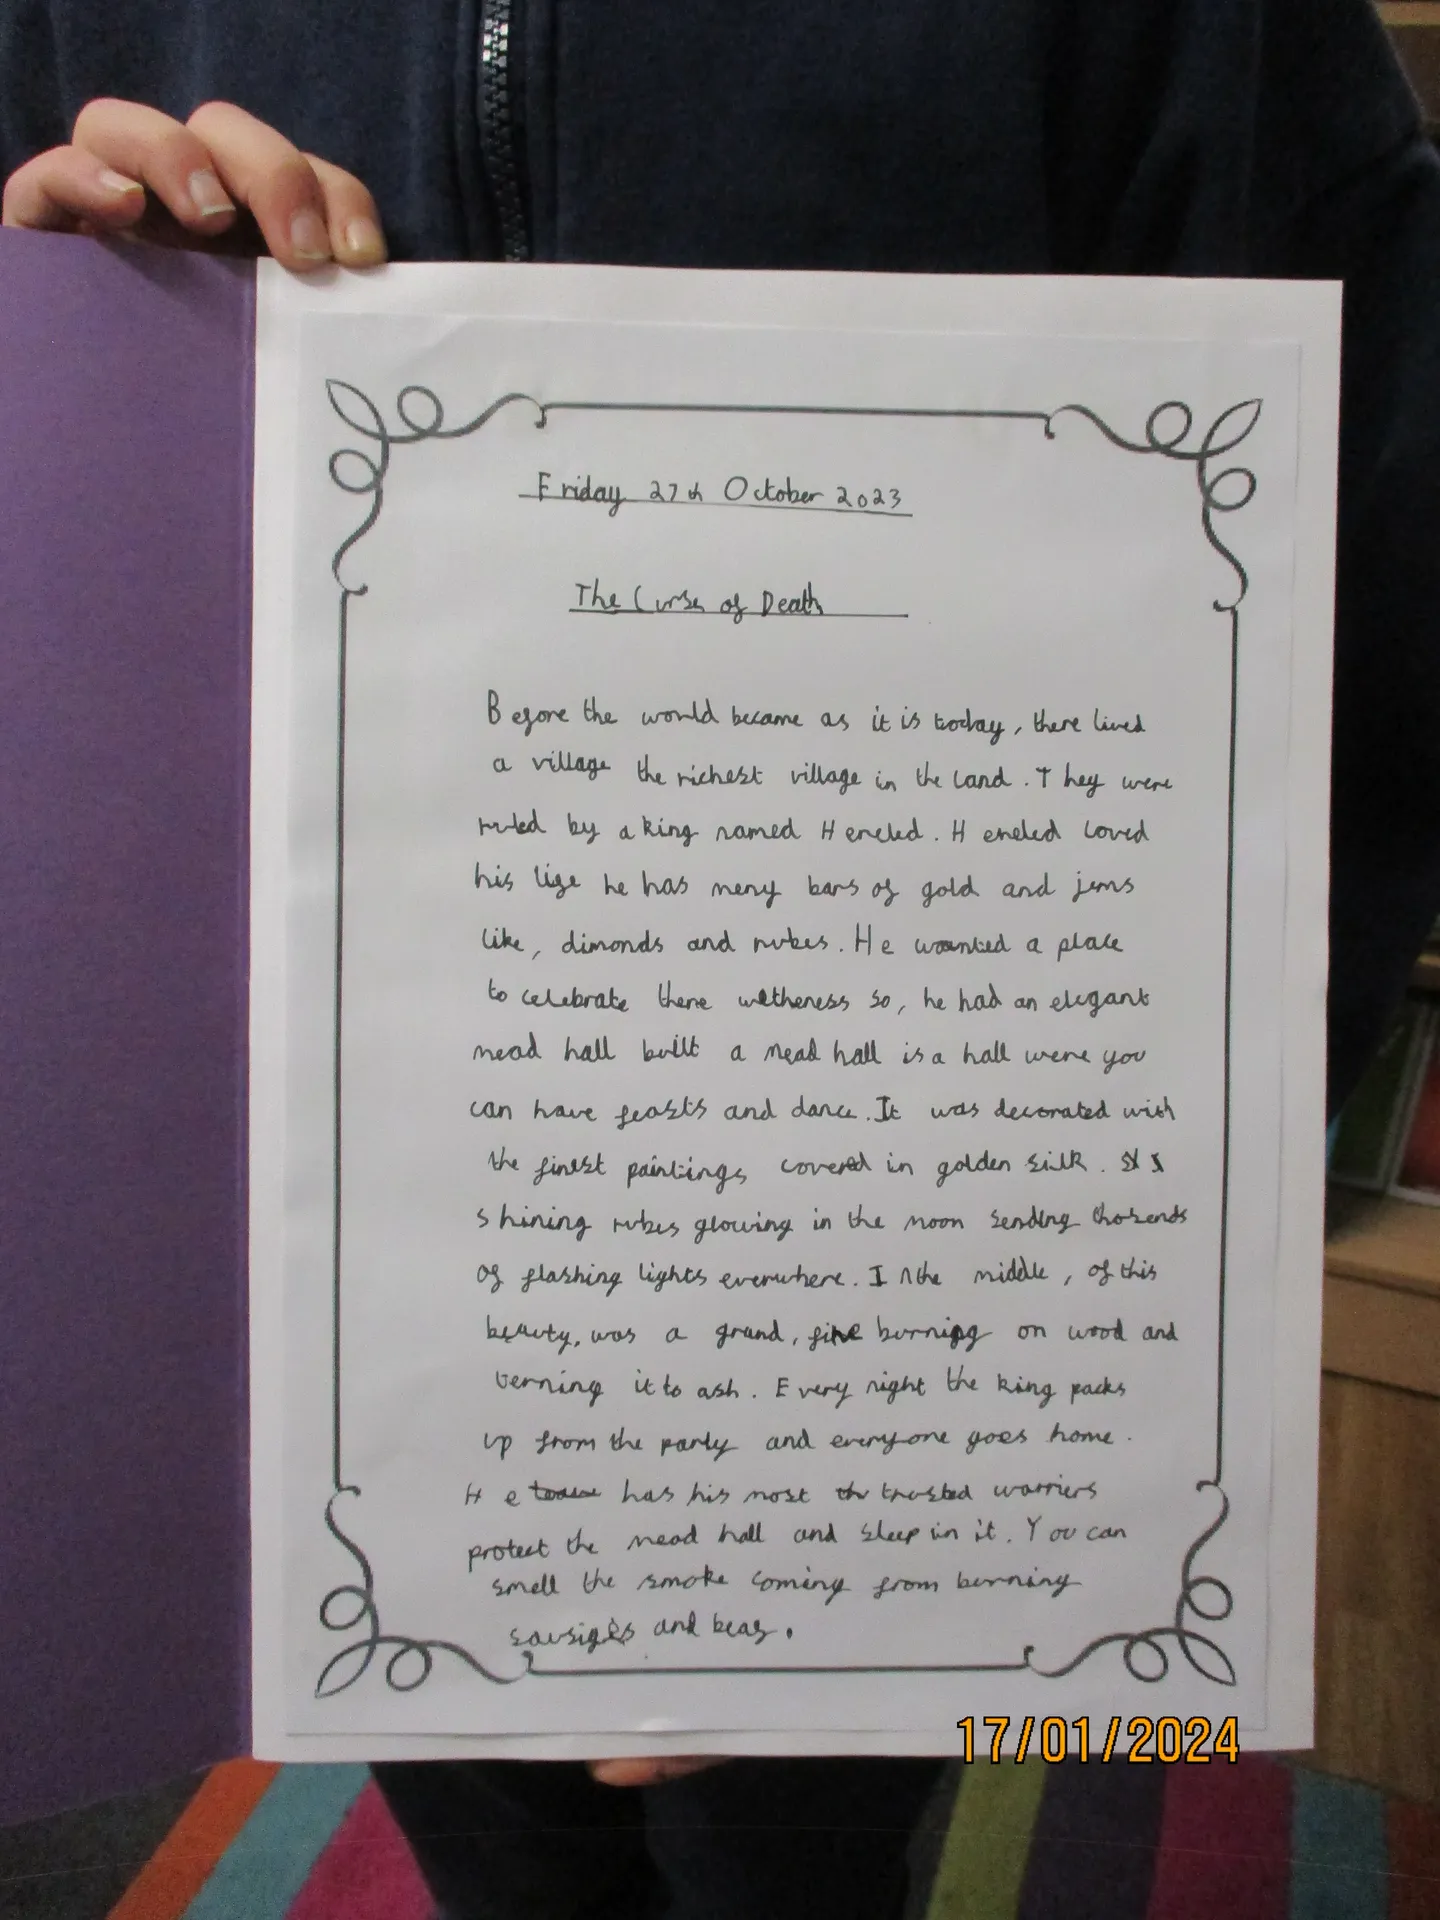 Friday 27th October 2023
The Curse of Death
Before the world became as it is today, there lived
a village the richest village in the land. They were
ruled by a king named Heneled. Heneled loved
his life he has meny bars of gold and jems
like, dimonds and rubes. He wanted a place
to celebrate there weltheness so, he had an elegant
mead hall built a mead hall is a hall were you
can have feasts and dance. It was decorated with
the finest paintings covered in golden silk.
shining rubes glowing in the moon sending thosends
of flashing lights everwhere. In the middle, of this
beauty, was a grand, fire burning on wood and
berning it to ash. Every night the king packs
up from the party and everyone goes home.
He has his most trusted warriers
protect the mead hall and sleep in it. You can
smell the smoke coming from berning
sausiges and
17/01/2024